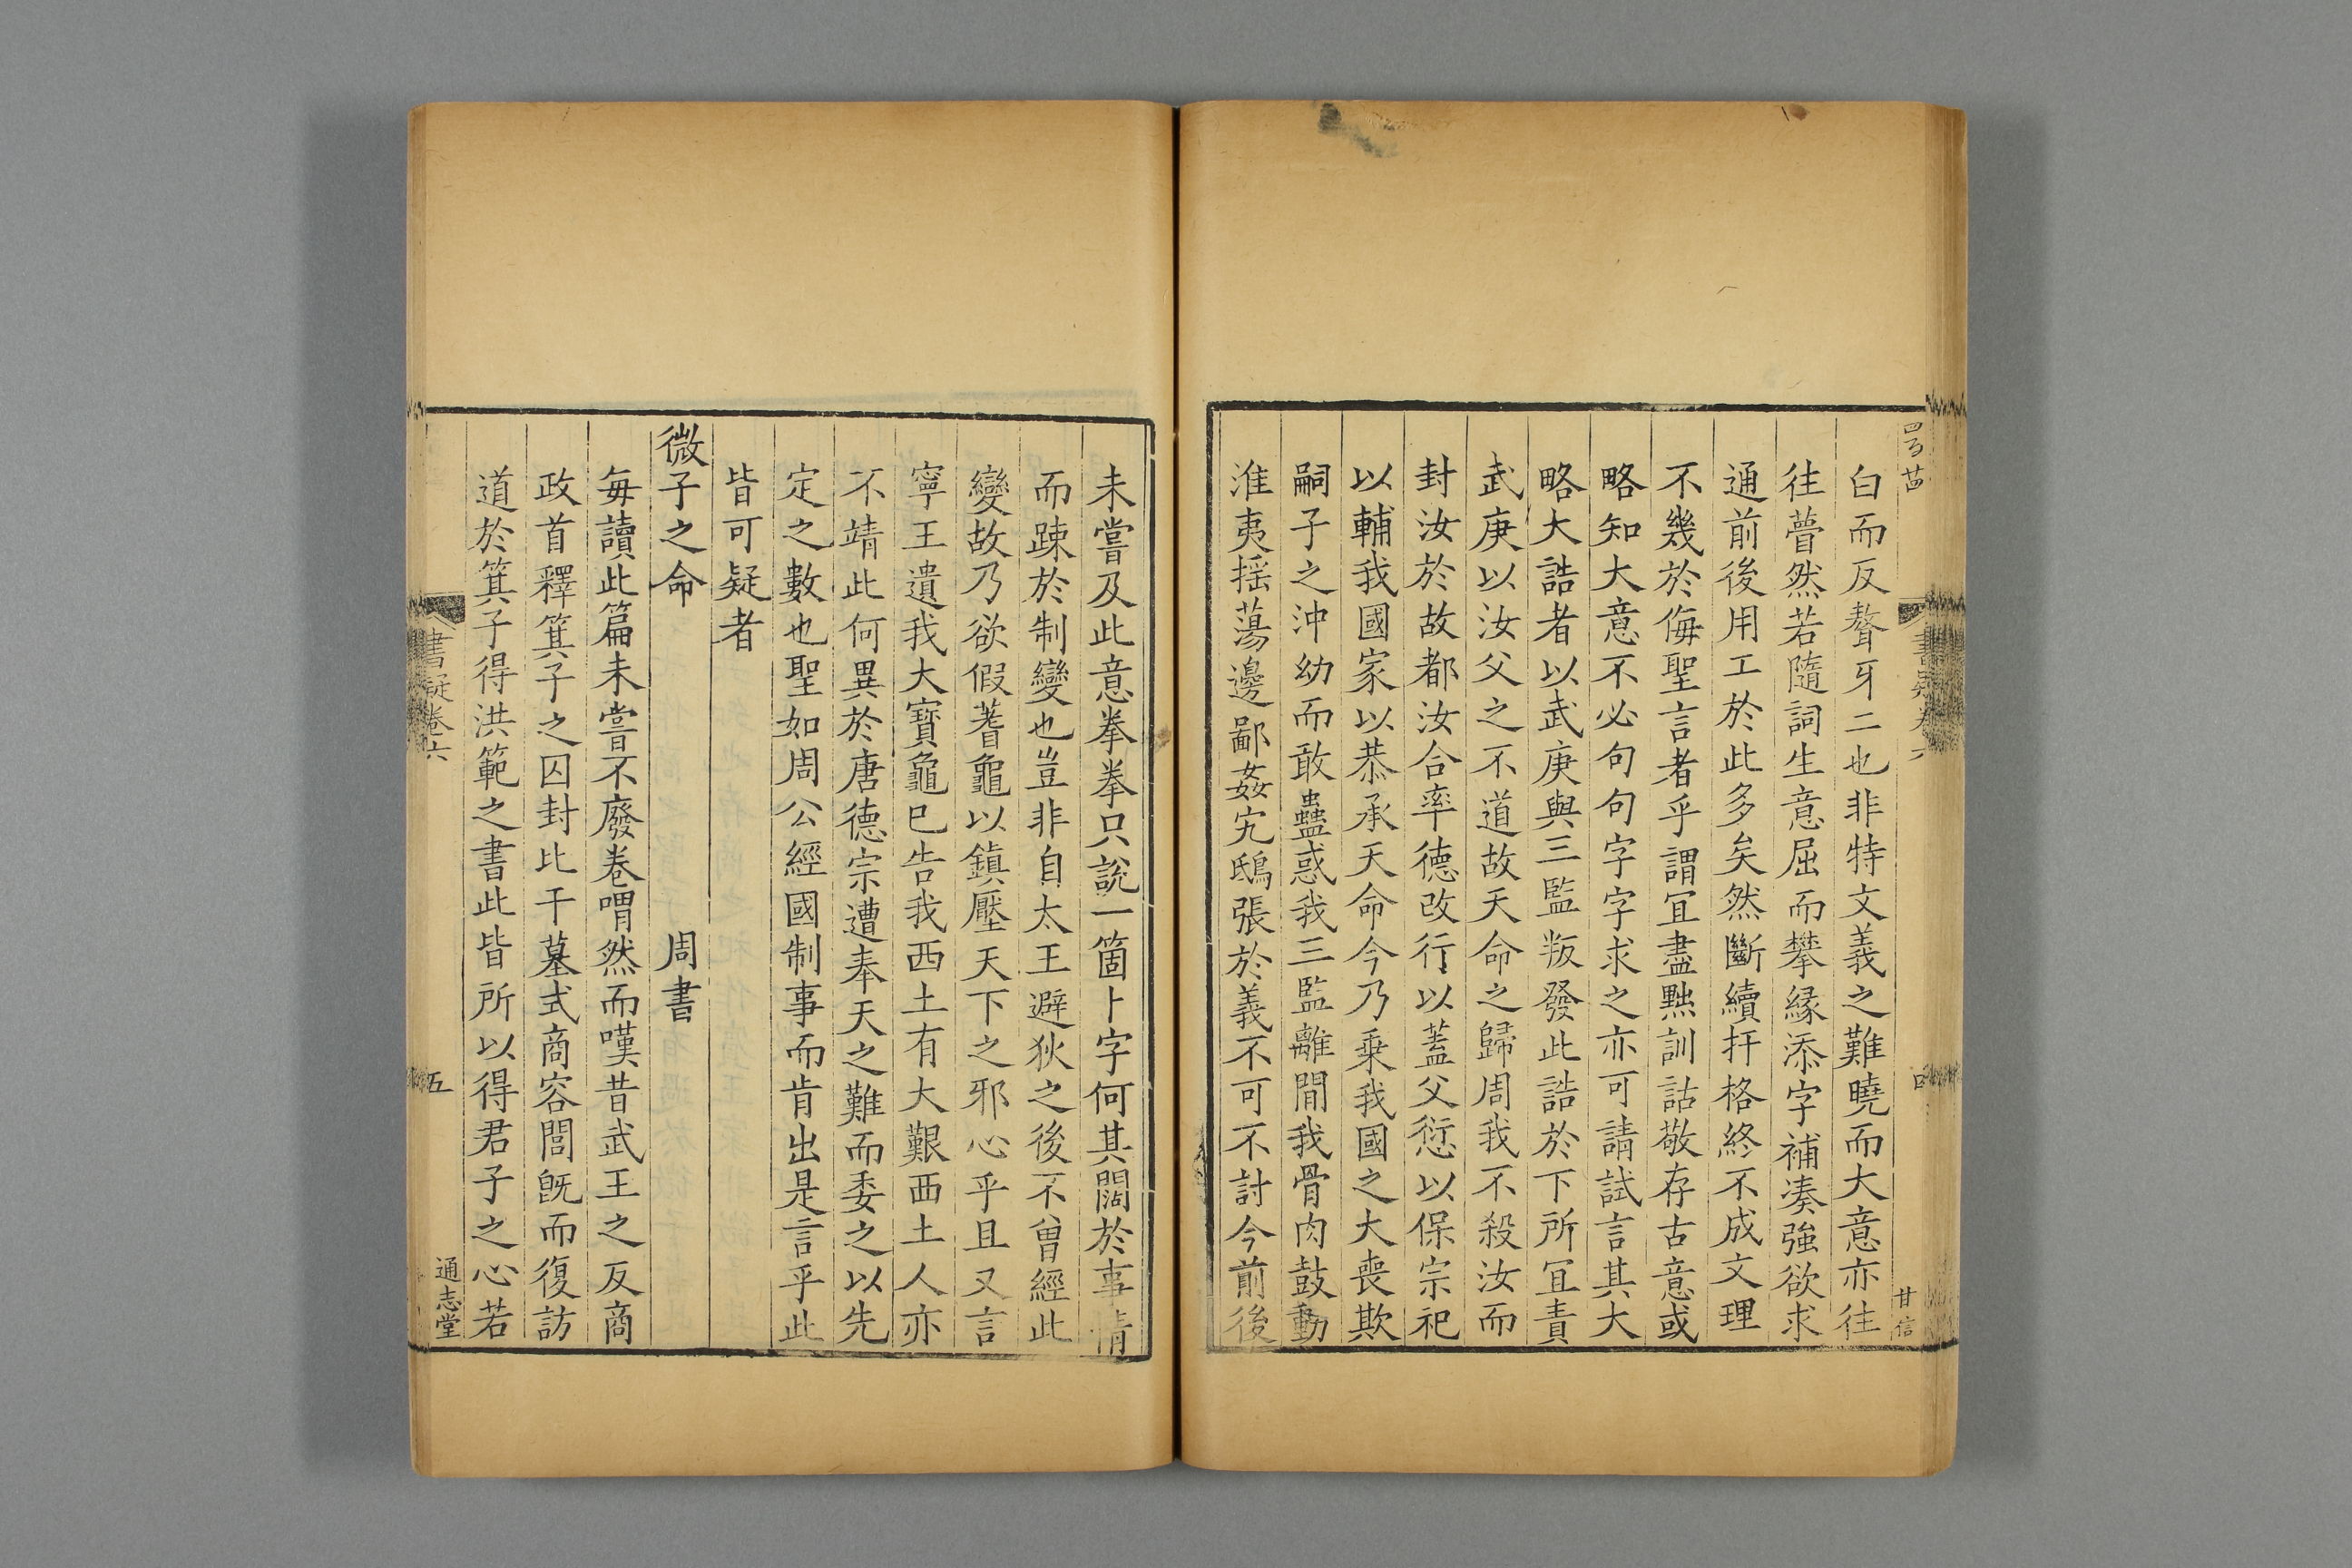 白而反聱牙二也非特文義之難曉而大意亦往
往瞢然若隨詞生意屈而攀縁添字補湊強欲求
通前後用工於此多矣然斷續扞格終不成文理
不幾於侮聖言者乎謂宜盡㸃訓詁敬存古意或
略知大意不必句句字字求之亦可請試言其大
略大誥者以武庚與三監叛發此誥於下所宜責
武庚以汝父之不道故天命之歸周我不殺汝而
封汝於故都汝合率德改行以蓋父愆以保宗祀
以輔我國家以恭承天命今乃乗我國之大喪欺
嗣子之沖幼而敢蠱惑我三監離間我骨肉鼓動
淮夷揺蕩邊鄙姦宄鴟張於義不可不討今前後
書疑卷六
四
甘信
未嘗及此意拳拳只說一箇卜字何其闊於事情
而踈於制變也豈非自太王避狄之後不曾經此
變故乃欲假蓍龜以鎮壓天下之邪心乎且又言
寧王遺我大寶龜巳告我西土有大艱西土人亦
不靖此何異於唐德宗遭奉天之難而委之以先
定之數也聖如周公經國制事而肯出是言乎此
皆可疑者
微子之命 周書
毎讀此篇未嘗不廢卷喟然而嘆昔武王之反商
政首釋箕子之囚封比干墓式商容閭旣而復訪
道於箕子得洪範之書此皆所以得君子之心若
書疑卷六
五
通志堂